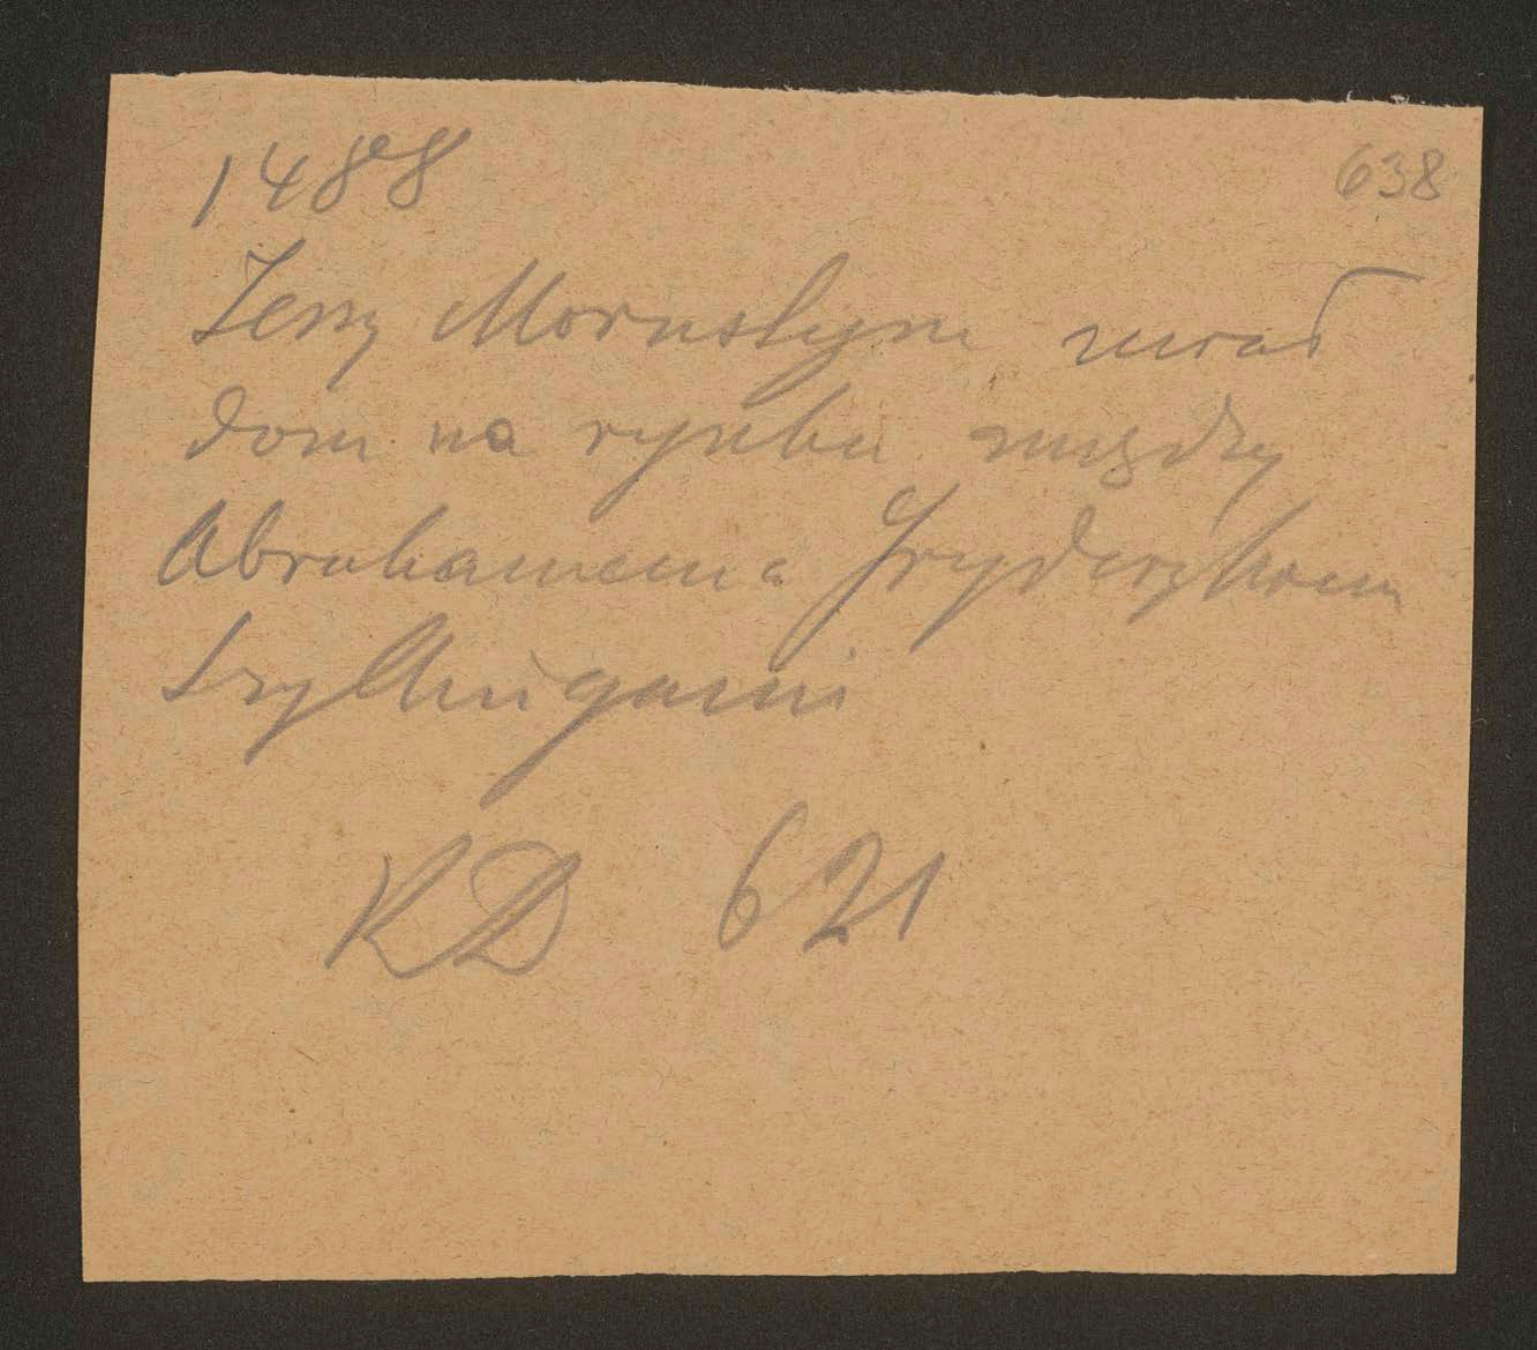 1488 638
Jerzy Mornstyn miał
dom na rynku między
Abrahamem a Fryderykiem
Szyllingami
KD 621